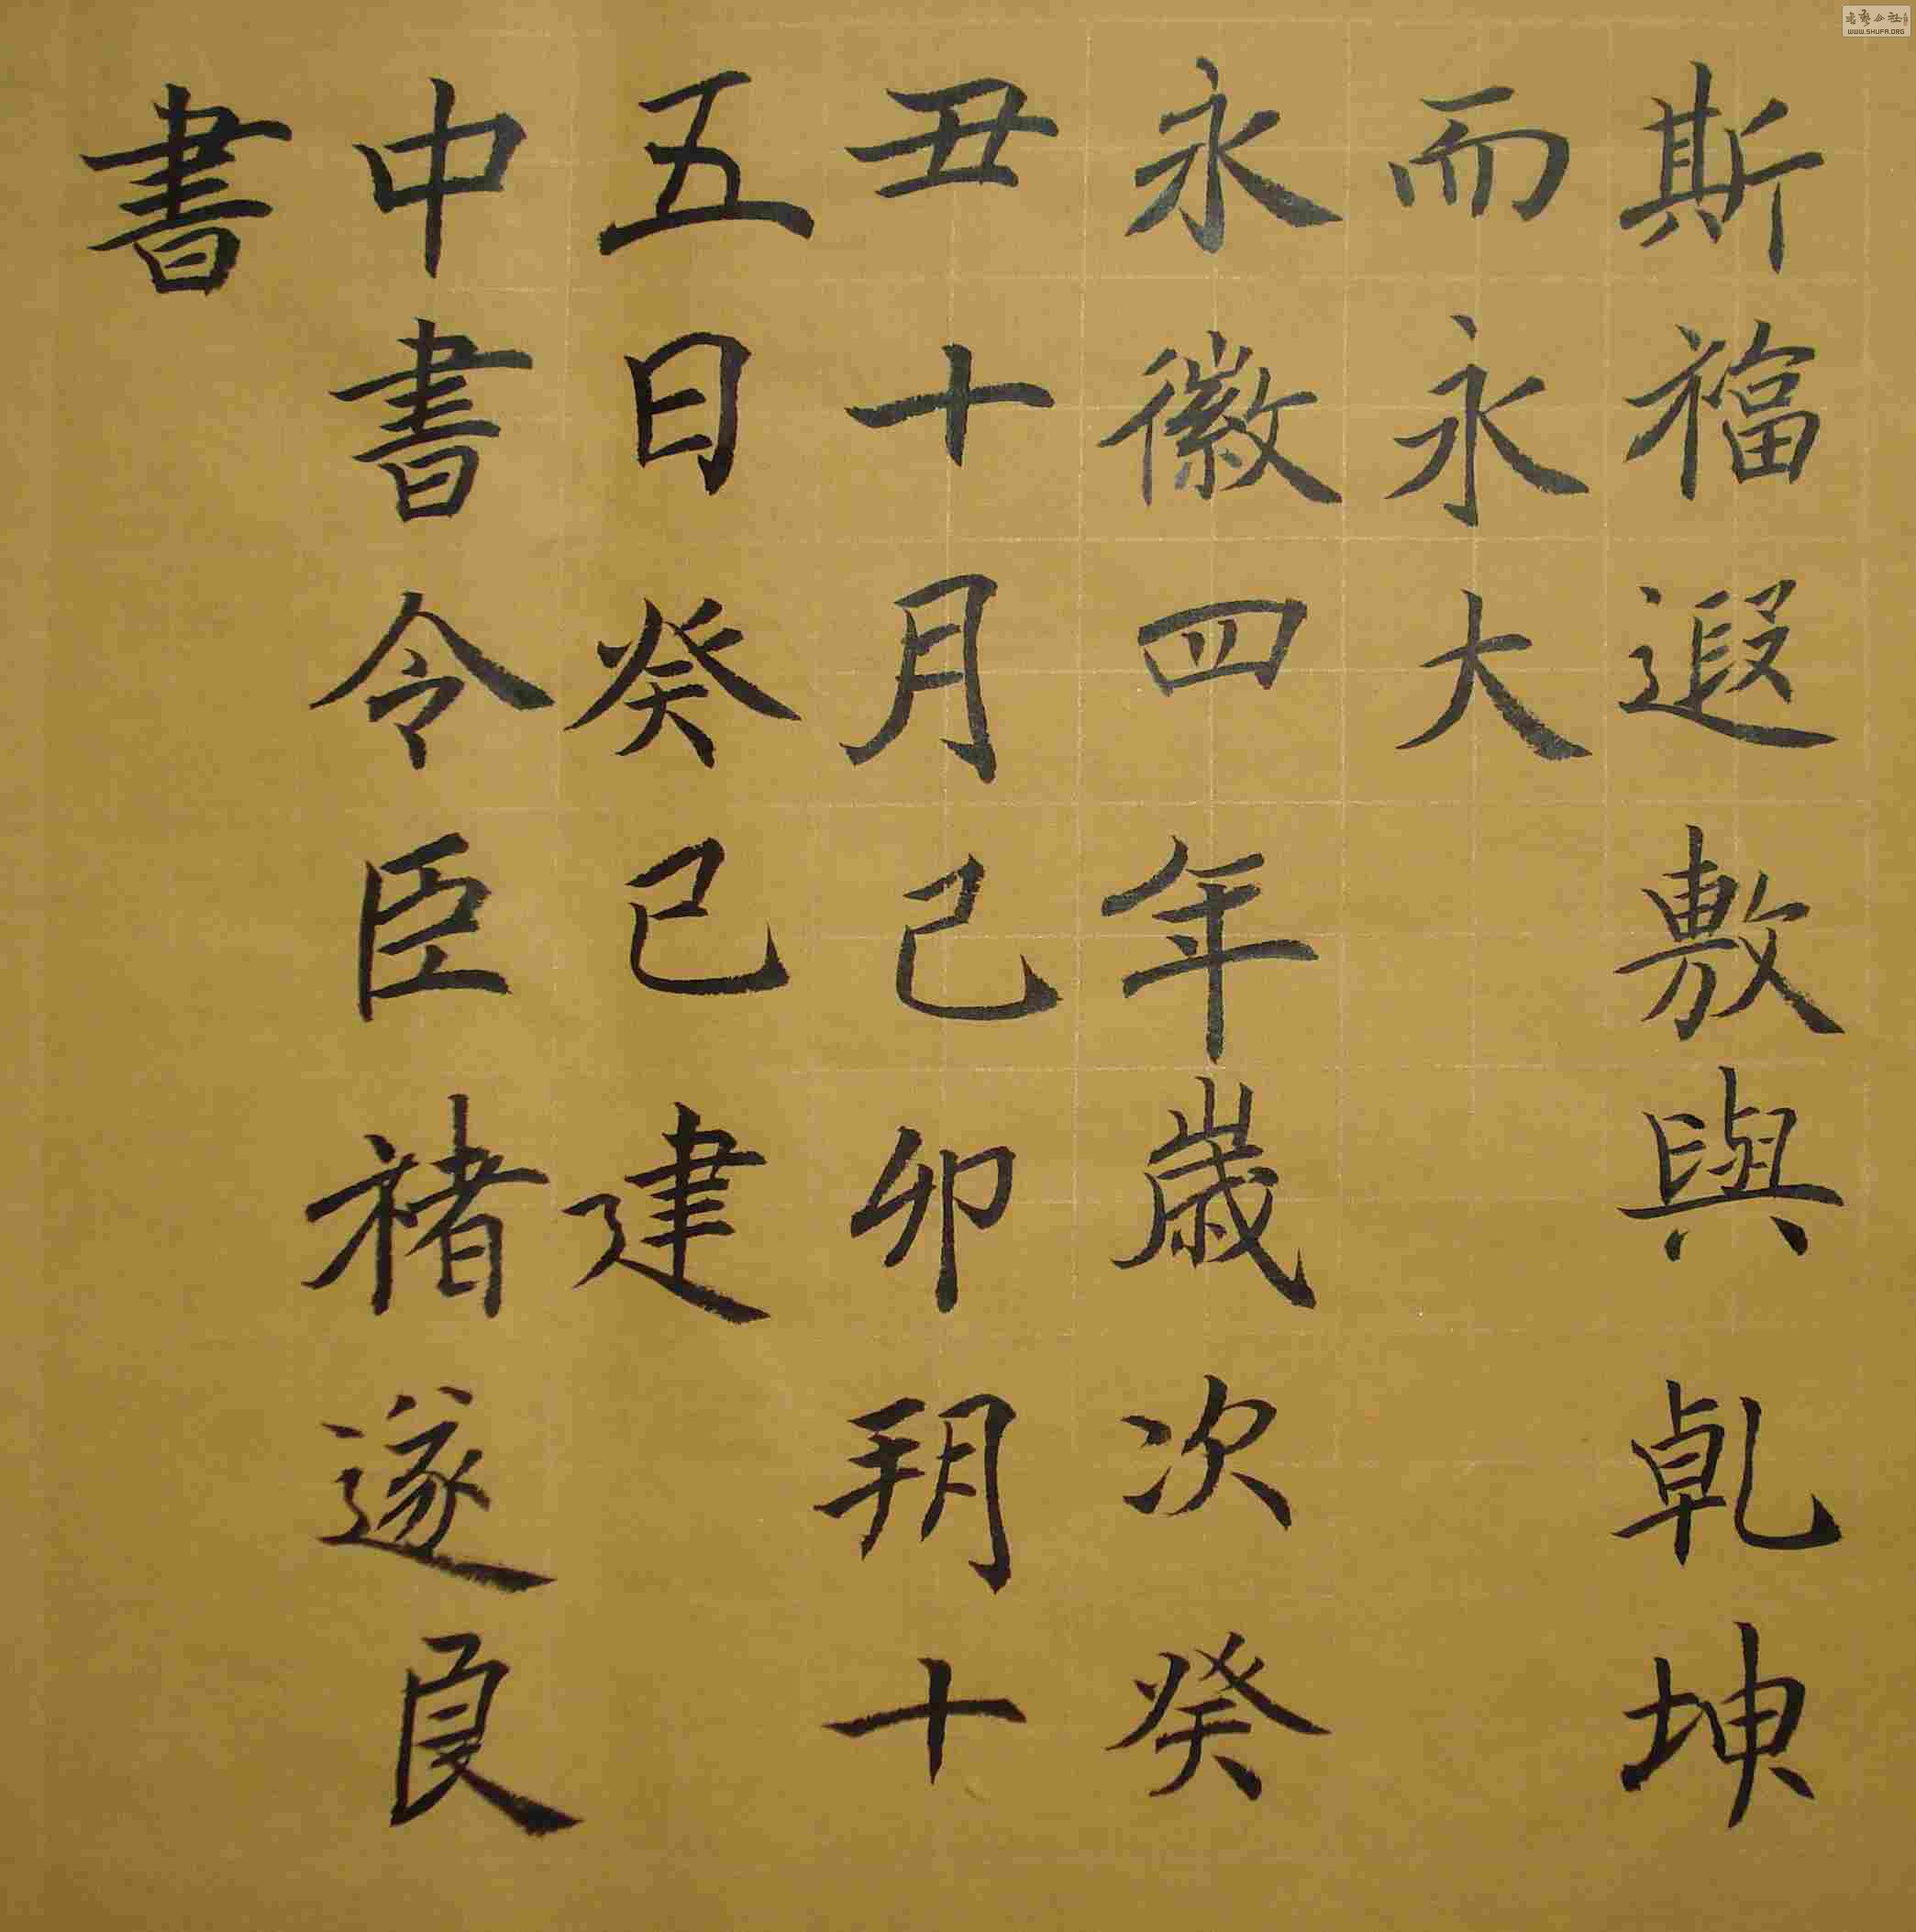 斯福遐敷與乹坤
而永大
永徽四年歲次癸
丑十月己卯朔十
五日癸巳建
中書令臣褚遂良
書
WWW.SHUFA.ORG